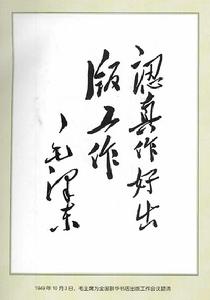 認真作好出
版工作
毛澤東
1949年10月3日,毛主席为全国新华书店出版工作会议题词